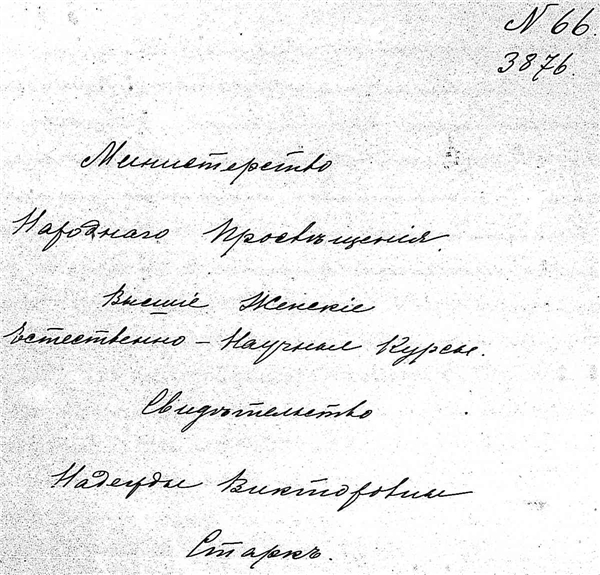 N 66.
3876
Министерство
Народнаго Просвѣщенія.
Высшіе Женскіе
Естественно - Научныя Курсы.
Свидѣтельство
Надежды Викторовны
Старкъ.